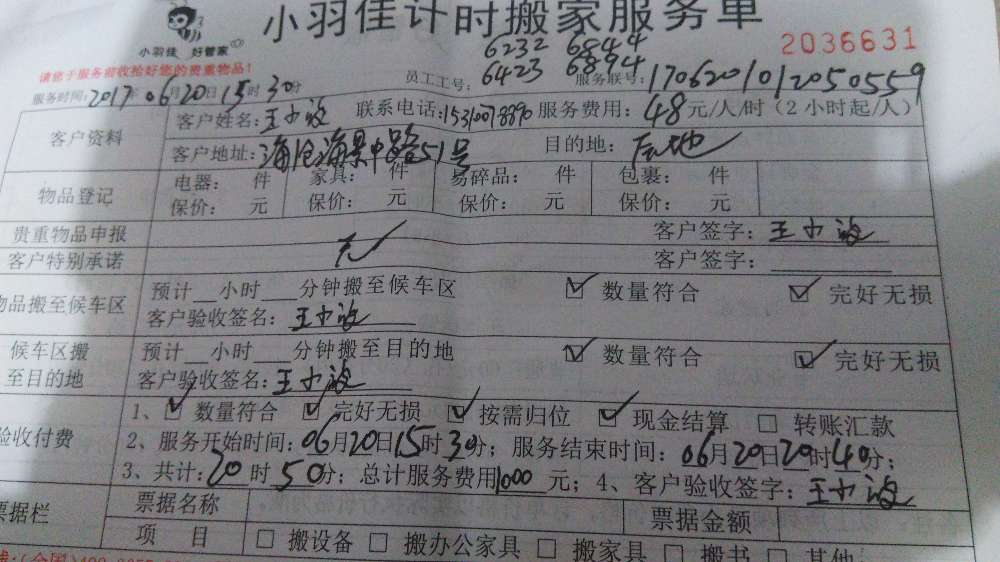 小羽佳计时搬家服务单
小羽佳 好管家
2036631
请您于服务前收拾好您的贵重物品!
员工工号: 6232 6844
6423 6894
服务联号: 1706201012050559
服务时间: 2017年06月20日15时30分
客户资料
客户姓名: 王小波 联系电话: 服务费用: 48元/人/时 (2小时起/人)
客户地址: 海沧海景中路51号 目的地:
物品登记
电器: 件 家具: 件 易碎品: 件 包裹: 件
保价: 元 保价: 元 保价: 元 保价: 元
贵重物品申报 无 客户签字: 王小波
客户特别承诺 客户签字:
物品搬至候车区
预计__小时___分钟搬至候车区 ☑ 数量符合 ☑ 完好无损
客户验收签名: 王小波
候车区搬至目的地
预计__小时___分钟搬至目的地 ☑ 数量符合 ☑ 完好无损
客户验收签名: 王小波
验收付费
1、☑ 数量符合 ☑ 完好无损 ☑ 按需归位 ☑ 现金结算 □ 转账汇款
2、服务开始时间: 06月20日15时30分; 服务结束时间: 06月20日20时40分;
3、共计: 20时50分; 总计服务费用1000元; 4、客户验收签字: 王小波
票据栏
票据名称 票据金额
项 目 □ 搬设备 □ 搬办公家具 □ 搬家具 □ 搬书 □ 其他: